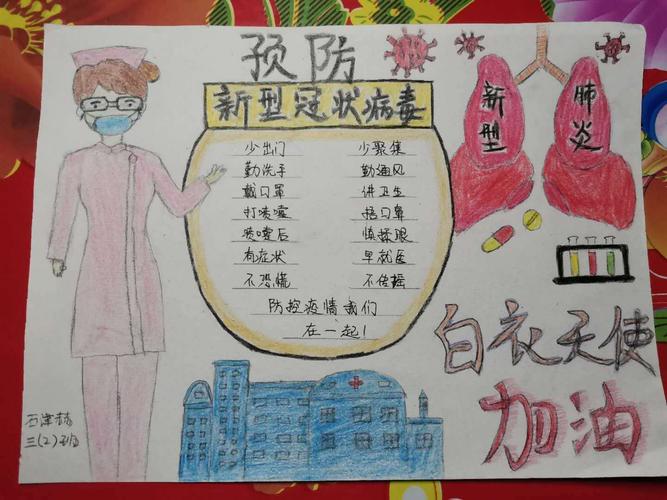 预防
新型冠状病毒
少出门 少聚集
勤洗手 勤通风
戴口罩 讲卫生
打喷嚏 捂口鼻
喷嚏后 慎揉眼
有症状 早就医
不恐慌 不传摇
防控疫情我们
在一起!
新型 肺炎
白衣天使
加油
三(2)班